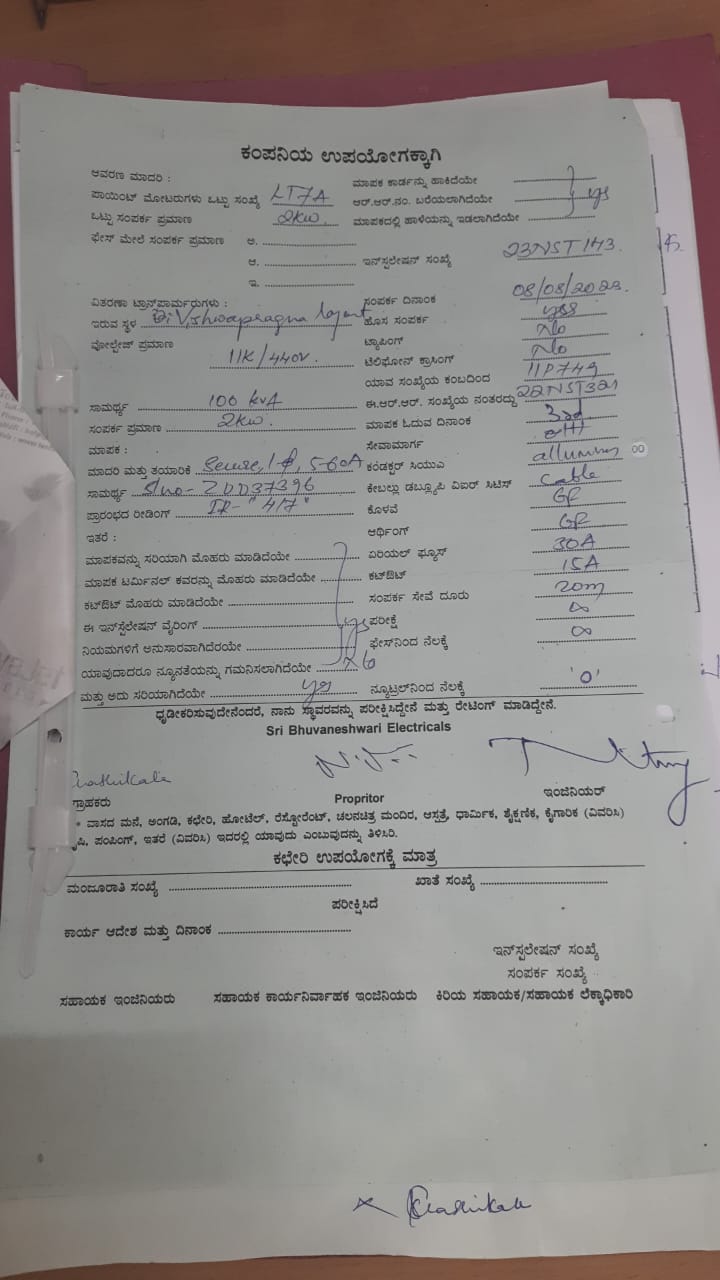 ಕಂಪನಿಯ ಉಪಯೋಗಕ್ಕಾಗಿ
ಆವರಣ ಮಾದರಿ : ಮಾಪಕ ಕಾರ್ಡನ್ನು ಹಾಕಿದೆಯೇ
ಪಾಯಿಂಟ್ ಮೋಟರುಗಳು ಒಟ್ಟು ಸಂಖ್ಯೆ LT7A ಆರ್.ಆರ್.ನಂ. ಬರೆಯಲಾಗಿದೆಯೇ yes
ಒಟ್ಟು ಸಂಪರ್ಕ ಪ್ರಮಾಣ 2kw ಮಾಪಕದಲ್ಲಿ ಹಾಳೆಯನ್ನು ಇಡಲಾಗಿದೆಯೇ
ಫೇಸ್ ಮೇಲೆ ಸಂಪರ್ಕ ಪ್ರಮಾಣ ಅ.
ಆ. ಇನ್‌ಸ್ಟಲೇಷನ್ ಸಂಖ್ಯೆ 23NST143.
ಇ.
ವಿತರಣಾ ಟ್ರಾನ್ಸ್‌ಫಾರ್ಮರುಗಳು : ಸಂಪರ್ಕ ದಿನಾಂಕ 08/08/2023.
ಇರುವ ಸ್ಥಳ Vishwapragna layout ಹೊಸ ಸಂಪರ್ಕ yes
ವೋಲ್ಟೇಜ್ ಪ್ರಮಾಣ 11K/440V. ಟ್ಯಾಪಿಂಗ್ No
ಟೆಲಿಫೋನ್ ಕ್ರಾಸಿಂಗ್ No
ಯಾವ ಸಂಖ್ಯೆಯ ಕಂಬದಿಂದ 11P749
ಸಾಮರ್ಥ್ಯ 100 kVA ಈ.ಆರ್.ಆರ್. ಸಂಖ್ಯೆಯ ನಂತರದ್ದು 22NST321
ಸಂಪರ್ಕ ಪ್ರಮಾಣ 2kw. ಮಾಪಕ ಓದುವ ದಿನಾಂಕ 3rd
ಮಾಪಕ : ಸೇವಾಮಾರ್ಗ OH
ಮಾದರಿ ಮತ್ತು ತಯಾರಿಕೆ Secure, 1-ϕ, 5-60A ಕಂಡಕ್ಟರ್ ಸಿಯುಎ 00
ಸಾಮರ್ಥ್ಯ Slno- ZDD37396 ಕೇಬಲ್ಲು ಡಬ್ಲ್ಯೂಪಿ ವಿಐರ್ ಸಿಟಿಸ್ cable
ಪ್ರಾರಂಭದ ರೀಡಿಂಗ್ IR- "417" ಕೊಳವೆ GP
ಇತರೆ : ಆರ್ಥಿಂಗ್ GP
ಮಾಪಕವನ್ನು ಸರಿಯಾಗಿ ಮೊಹರು ಮಾಡಿದೆಯೇ ಏರಿಯಲ್ ಫ್ಯೂಸ್ 30A
ಮಾಪಕ ಟರ್ಮಿನಲ್ ಕವರನ್ನು ಮೊಹರು ಮಾಡಿದೆಯೇ ಕಟ್‌ಔಟ್ 15A
ಕಟ್‌ಔಟ್ ಮೊಹರು ಮಾಡಿದೆಯೇ ಸಂಪರ್ಕ ಸೇವೆ ದೂರು 20m
ಈ ಇನ್‌ಸ್ಟಲೇಷನ್ ವೈರಿಂಗ್ yes ಪರೀಕ್ಷೆ ∞
ನಿಯಮಗಳಿಗೆ ಅನುಸಾರವಾಗಿದೆರಯೇ ಫೇಸ್‌ನಿಂದ ನೆಲಕ್ಕೆ ∞
ಯಾವುದಾದರೂ ನ್ಯೂನತೆಯನ್ನು ಗಮನಿಸಲಾಗಿದೆಯೇ No
ಮತ್ತು ಅದು ಸರಿಯಾಗಿದೆಯೇ yes ನ್ಯೂಟ್ರಲ್‌ನಿಂದ ನೆಲಕ್ಕೆ '0'
ಧೃಡೀಕರಿಸುವುದೇನೆಂದರೆ, ನಾನು ಸ್ಥಾವರವನ್ನು ಪರೀಕ್ಷಿಸಿದ್ದೇನೆ ಮತ್ತು ರೇಟಿಂಗ್ ಮಾಡಿದ್ದೇನೆ.
Sri Bhuvaneshwari Electricals
ಗ್ರಾಹಕರು Propritor ಇಂಜಿನಿಯರ್
* ವಾಸದ ಮನೆ, ಅಂಗಡಿ, ಕಛೇರಿ, ಹೋಟೆಲ್, ರೆಸ್ಟೋರೆಂಟ್, ಚಲನಚಿತ್ರ ಮಂದಿರ, ಆಸ್ಪತ್ರೆ, ಧಾರ್ಮಿಕ, ಶೈಕ್ಷಣಿಕ, ಕೈಗಾರಿಕ (ವಿವರಿಸಿ)
ಪಂಪಿಂಗ್, ಇತರೆ (ವಿವರಿಸಿ) ಇದರಲ್ಲಿ ಯಾವುದು ಎಂಬುವುದನ್ನು ತಿಳಿಸಿರಿ.
ಕಛೇರಿ ಉಪಯೋಗಕ್ಕೆ ಮಾತ್ರ
ಮಂಜೂರಾತಿ ಸಂಖ್ಯೆ ಖಾತೆ ಸಂಖ್ಯೆ
ಪರೀಕ್ಷಿಸಿದೆ
ಕಾರ್ಯ ಆದೇಶ ಮತ್ತು ದಿನಾಂಕ
ಇನ್‌ಸ್ಟಲೇಷನ್ ಸಂಖ್ಯೆ
ಸಂಪರ್ಕ ಸಂಖ್ಯೆ
ಸಹಾಯಕ ಇಂಜಿನಿಯರು ಸಹಾಯಕ ಕಾರ್ಯನಿರ್ವಾಹಕ ಇಂಜಿನಿಯರು ಕಿರಿಯ ಸಹಾಯಕ/ಸಹಾಯಕ ಲೆಕ್ಕಾಧಿಕಾರಿ